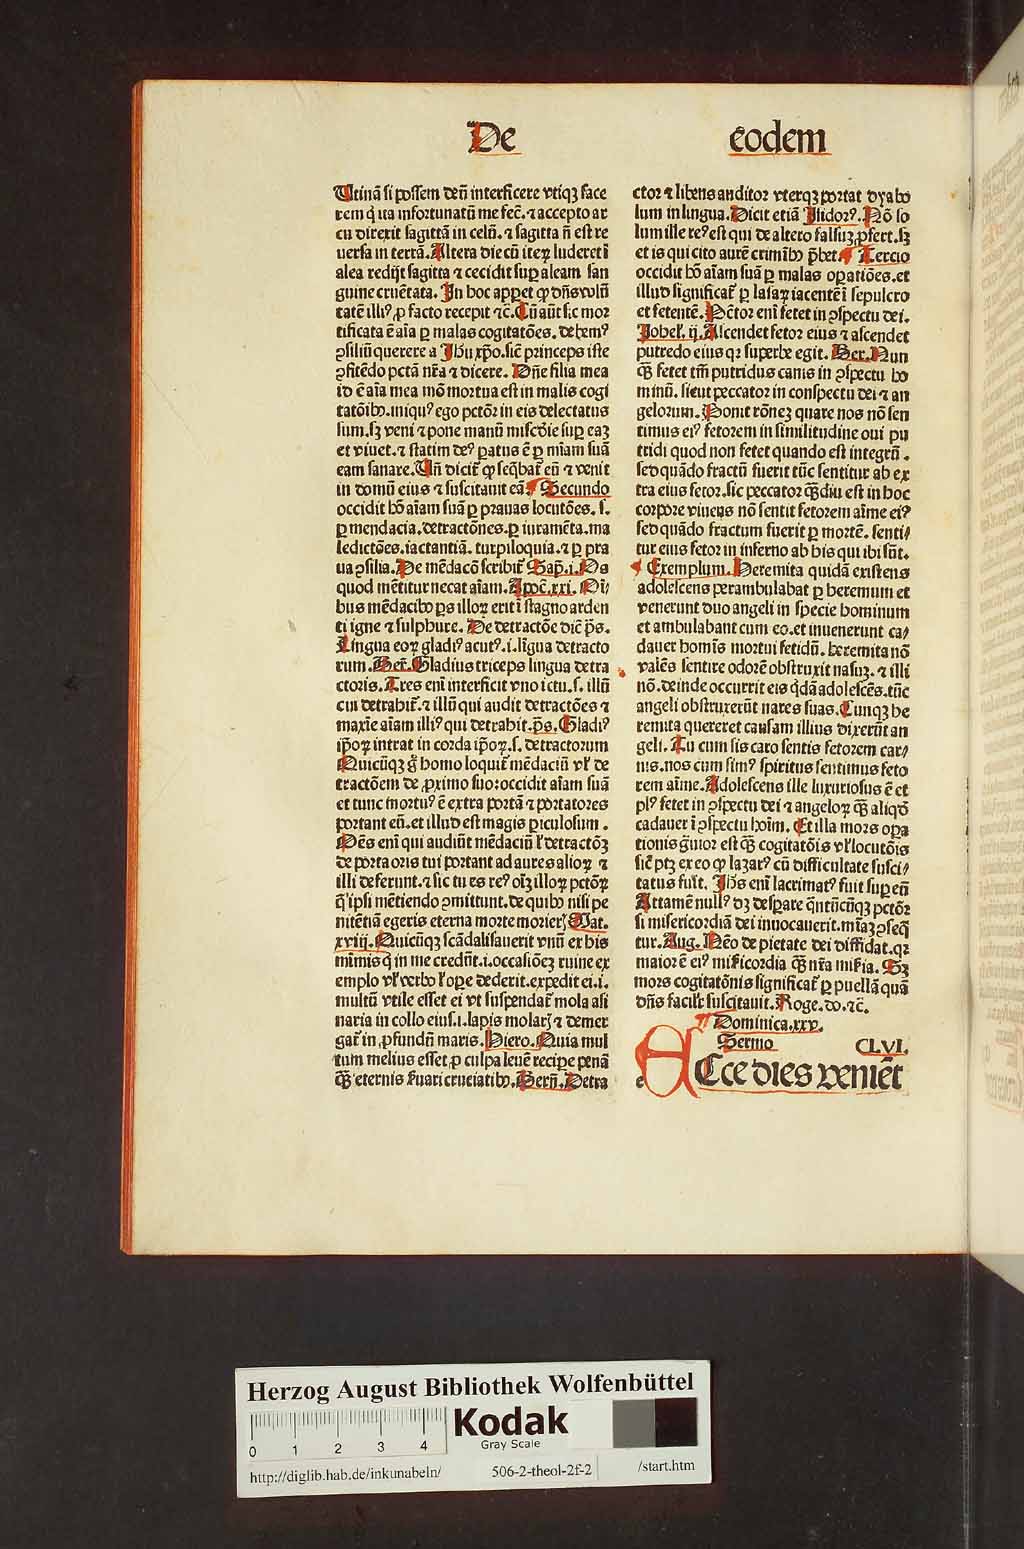 De eodem
Utinā si possem deū interficere vtiqꝫ face
rem q̇ ita infortunatū me fec̄. ⁊ accepto ar
cu direxit sagittā in celū. ⁊ sagitta ñ est re
uersa in terrā. Altera die cū iteꝝ luderet ī
alea redijt sagitta ⁊ cecidit suꝑ aleam san
guine cruētata. In hoc apꝑet ꝙ dñs volū
tatē illiꝰ ꝓ facto recepit ⁊c̄. Cū aūt sic mor
tificata ē aīa ꝑ malas cogitatōes. debemꝰ
ꝯsiliū querere a Jhū xp̄o. sic̄ princeps iste
ꝯfitēdo pctā nr̄a ⁊ dicere. Dñe filia mea
id ē aīa mea mō mortua est in malis cogi
tatōibꝰ. iniquꝰ ego pctōr in eis delectatus
sum. sꝫ veni ⁊ pone manū misc̄die suꝑ eaꝫ
et viuet. ⁊ statim deꝰ ꝑatus ē ꝑ mīam suā
eam sanare. Uñ dicit̄ ꝙ seq̄bat̄ eū ⁊ venit
in domū eius ⁊ suscitauit eā. Secundo
occidit hō aīam suā ꝑ prauas locutōes. s.
ꝑ mendacia. detractōnes. ꝑ iuramēta. ma
ledictōes. iactantiā. turpiloquia. ⁊ ꝑ pra
ua ꝯsilia. De mēdacō scribit̄ Sap̄. i. Os
quod mētitur necat aīam. Apoc̄. xxi. Oī
bus mēdacibꝰ ꝑs illoꝝ erit ī stagno arden
ti igne ⁊ sulphure. De detractōe dic̄ p̄s.
Lingua eoꝝ gladiꝰ acutꝰ. i. līgua detracto
rum. Ber̄. Gladius triceps lingua detra
ctoris. Tres enī interficit vno ictu. s. illū
cui detrahit̄. ⁊ illū qui audit detractōes ⁊
maxīe aīam illiꝰ qui detrahit. p̄s. Gladiꝰ
ip̄oꝝ intrat in corda ip̄oꝝ. s. detractorum
Quicūqꝫ g̊ homo loquit̄ mēdaciū vl̓ de
tractōem de ꝓximo suo: occidit aīam suā
et tunc mortuꝰ ē extra portā ⁊ portatores
portant eū. et illud est magis ꝑiculosum.
Oēs enī qui audiūt mēdaciū l̓ detractōꝫ
de porta oris tui portant ad aures alioꝝ ⁊
illi deferunt. ⁊ sic tu es reꝰ oīꝫ illoꝝ pctōꝝ
q̄ ipsi mētiendo ꝯmittunt. de quibꝰ nisi pe
nitētiā egeris eterna morte morierꝭ Mat.
xviij. Quicūqꝫ scādalisauerit vnū ex his
mīmis q̇ in me credūt. i. occasiōeꝫ ruine ex
emplo vl̓ verbo l̓ oꝑe dederit. expedit ei. i.
multū vtile esset ei vt suspendat̄ mola asi
naria in collo eius. i. lapis molarꝭ ⁊ demer
gat̄ in ꝓfundū maris. Hiero. Quia mul
tum melius esset ꝓ culpa leuē reciꝑe penā
qꝫ̄ eternis s̓uari cruciatibꝰ. Bern̄. Detra
ctor ⁊ libens auditor vterqꝫ portat dyabo
lum in lingua. Dicit etiā Isidorꝰ. Nō so
lum ille reꝰ est qui de altero falsuꝫ ꝓfert. sꝫ
et is qui cito aurē crimībꝰ p̄bet. Tercio
occidit hō aīam suā ꝑ malas oꝑatiōes. et
illud significat̄ ꝑ lasaꝝ iacentē ī sepulcro
et fetentē. Pc̄tor enī fetet in ꝯspectu dei.
Johel̓. ij. Ascendet fetor eius ⁊ ascendet
putredo eius qꝛ superbe egit. Ber. Nun
qꝫ̄ fetet tm̄ putridus canis in ꝯspectu ho
minū. sicut peccator in conspectu dei ⁊ an
gelorum. Ponit rōneꝫ quare nos nō sen
timus eiꝰ fetorem in similitudine oui pu
tridi quod non fetet quando est integrū.
sed quādo fractū fuerit tūc sentitur ab ex
tra eius fetor. sic peccator qꝫ̄diu est in hoc
corpore viuens nō sentit fetorem aīme eiꝰ
sed quādo fractum fuerit ꝑ mortē. senti/
tur eius fetor in inferno ab his qui ibi sūt.
Exemplum. Heremita quidā existens
adolescens perambulabat ꝑ heremum et
venerunt duo angeli in specie hominum
et ambulabant cum eo. et inuenerunt ca/
dauer homīs mortui fetidū. heremita nō
valēs sentire odorē obstruxit nasuꝫ. ⁊ illi
nō. deinde occurrit eis q̇dā adolescēs. tūc
angeli obstruxerūt nares suas. Cunqꝫ he
remita quereret causam illius dixerūt an
geli. Tu cum sis caro sentis fetorem car/
nis. nos cum simꝰ spiritus sentimus feto
rem aīme. Adolescens ille luxuriosus ē et
plꝰ fetet in ꝯspectu dei ⁊ angeloꝝ qꝫ̄ aliqd̓
cadauer ī ꝯspectu hoīm. Et illa mors oꝑa
tionis g̊uior est qꝫ̄ cogitatōis vl̓ locutōis
sic̄ ptꝫ ex eo ꝙ lazarꝰ cū difficultate susci/
tatus fuit. Jhs̄ enī lacrimatꝰ fuit suꝑ eū
Attamē nullꝰ dꝫ desꝑare q̄ntūcūqꝫ pctōr
si misericordiā dei inuocauerit. mīaꝫ ꝯseq̄
tur. Aug. Nēo de pietate dei diffidat. qꝛ
maior ē eiꝰ mi̓icordia qꝫ̄ nr̄a mi̓ia. Sꝫ
mors cogitatōnis significat̄ ꝑ puellā quā
dñs facilit̓ suscitauit. Roge. do. ⁊c̄.
Dominica. xxv.
Sermo CLVI.
e ECce dies veniēt
Herzog August Bibliothek Wolfenbüttel
Kodak
Gray Scale
0 1 2 3 4
http://diglib.hab.de/inkunabeln/ 506-2-theol-2f-2 /start.htm